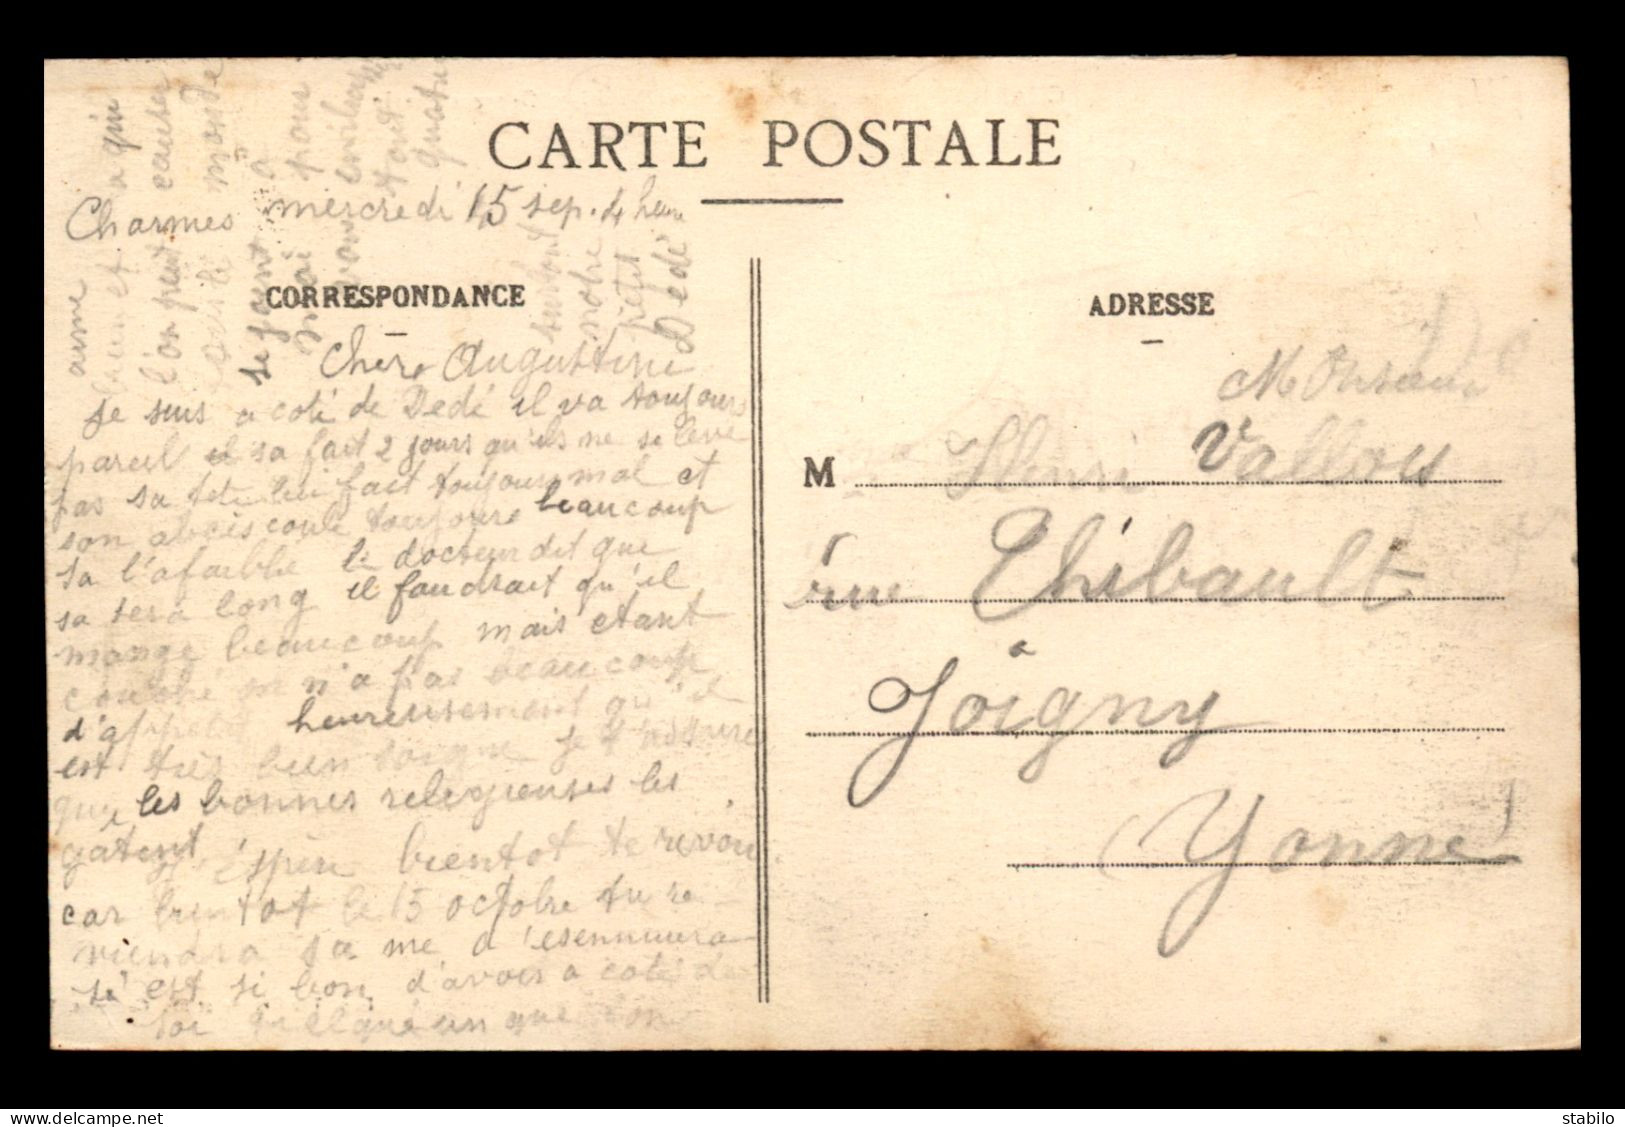 CARTE POSTALE
Charmes mercredi 15 sep. 4 heure
CORRESPONDANCE
Chere Augustine
Je suis a coté de Dedé il va toujours
pareil il sa fait 2 jours qu'ils ne se leve
pas sa fete lui fait toujours mal et
son abcès coule toujours beaucoup
sa l'afaiblie le docteur dit que
sa sera long il faudrait qu'il
mange beaucoup mais etant
couché on n'a pas beaucoup
d'appetit heureusement qu'il
est très bien soigné je t'assure
que les bonnes religieuses les
gâtent Espère bientot te revoir
car bientot le 15 octobre tu re-
viendra sa me d'esennuiera
s'est si bon d'avoir a coté de
soi quelqu'un que l'on
aime
et a qui
l'on peut causer
le monde
se joint a
moi pour
vous
tout
notre
petit
Dedé
ADRESSE
Monsieur
M Henri Vallous
rue Thibault
a
Joigny
Yonne
delcampe.net
stabilo